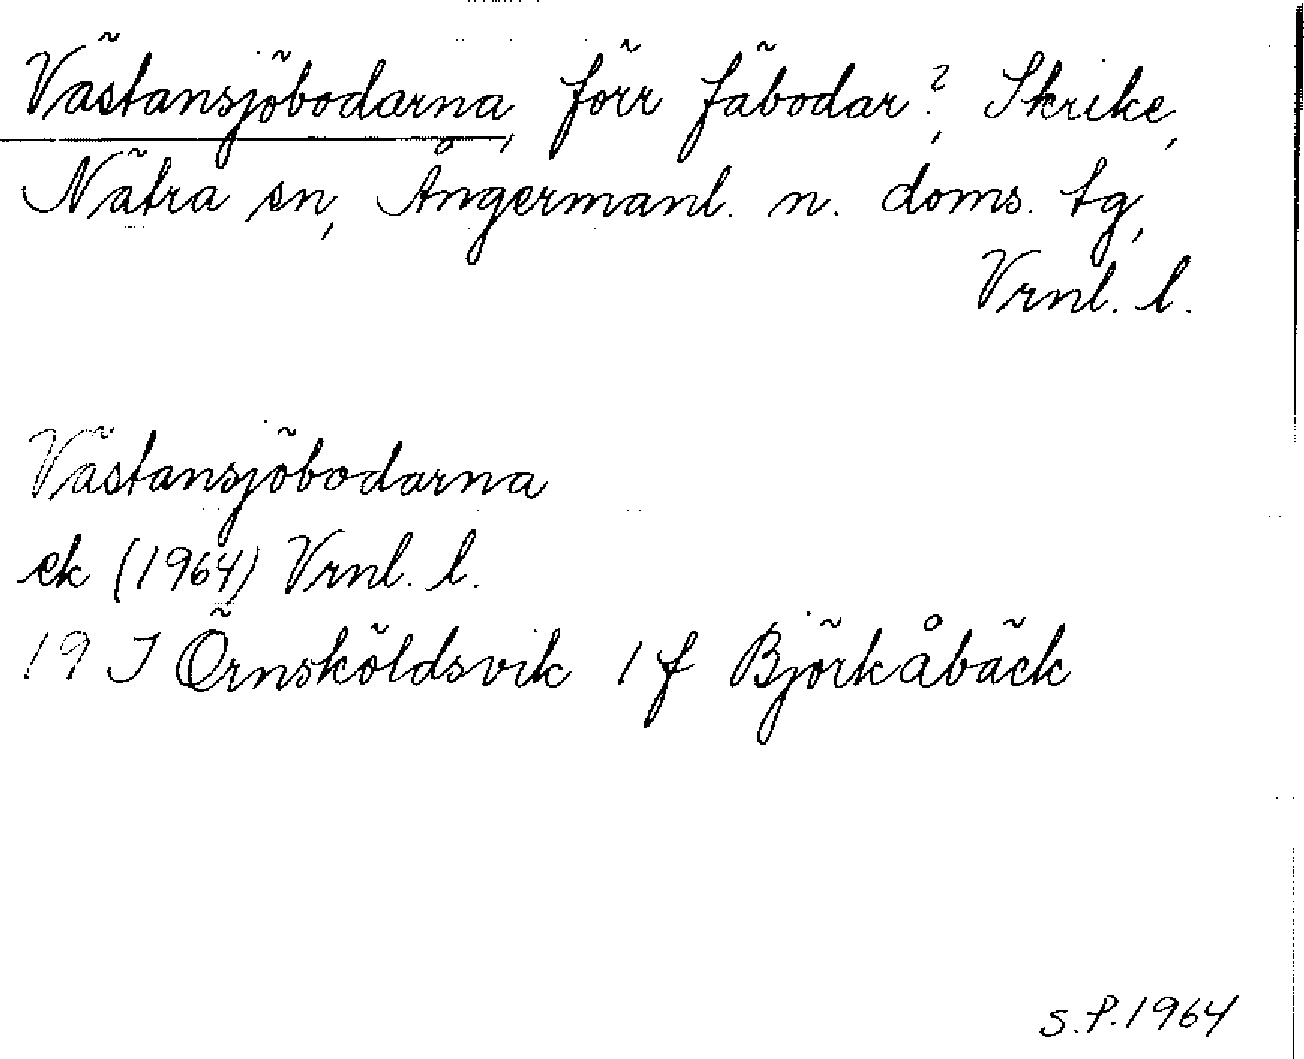 Västansjöbodarna, förr fäbodar?, Skrike,
Nätra sn, Ångermanl. n. doms. tg,
Vrnl. l.
Västansjöbodarna
ek (1964) Vrnl. l.
19 I Örnsköldsvik 1 f Björkåbäck
S.P.1964